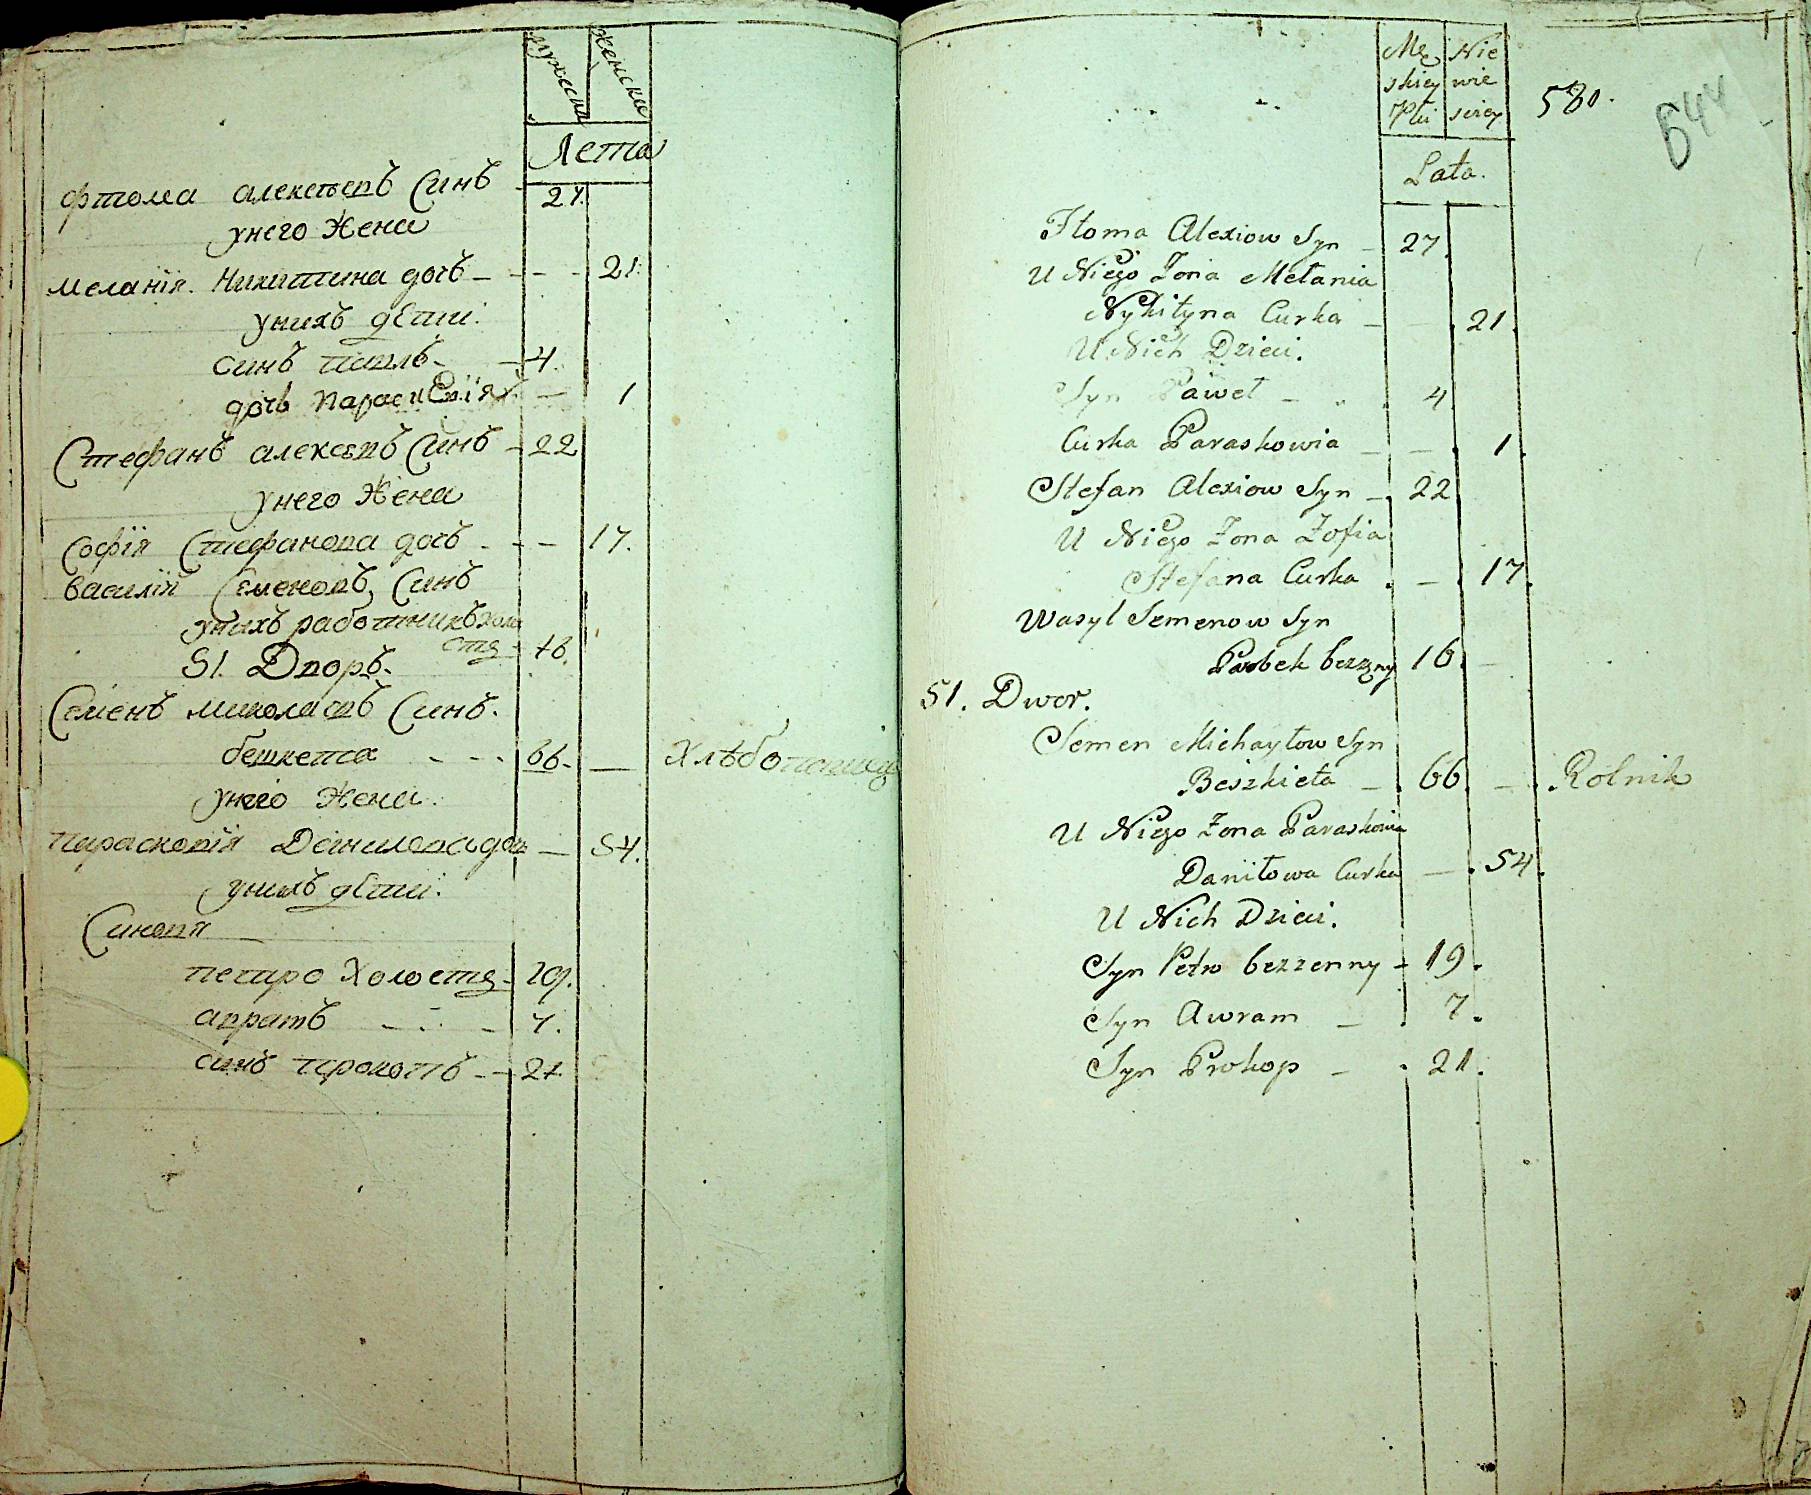 мужеска женска
Лета
Фтома алексѣевъ Синъ - 27.
унего Жена
Меланїя. Никитина дочь - - - - 21.
унихъ дѣти:
синъ павлъ - - 4.
дочь параскевїя - 1
Стефанъ алексѣевъ Синъ - 22
унего Жена
Софїя Стефанова дочь - - - 17.
василїй Семеновъ Синъ
унихъ работникъ холо
стъ - 16.
51. Дворъ.
Семенъ миколаевъ Синъ.
бешкета - - - 66. — Хлѣбопашец
унего Жена
параскевїя Данилова дочь — 54.
унихъ дѣти:
Синовя
петро Холостъ - 19.
аврамъ - - - 7.
синъ прокопъ - - 21.
Mę Nie
skiey wie
Płci sciey
580.
544
Lata.
Ftoma Alexiow Syn - 27.
U Niego Zona Melania
Nykityna Curka - - 21.
U Nich Dzieci.
Syn Paweł - - 4
Curka Paraskowia - - 1.
Stefan Alexiow Syn - 22
U Niego Zona Zofia
Stefana Curka . - 17.
Wasyl Semenow Syn
Parobek bezżęny 16. -
51. Dwor.
Semen Michayłow Syn
Beszkieta - 66. - Rolnik
U Niego Zona Paraskowia
Daniłowa Curka - . 54.
U Nich Dzieci.
Syn Petro bezzenny - 19.
Syn Awram - . 7.
Syn Prokop - . 21.